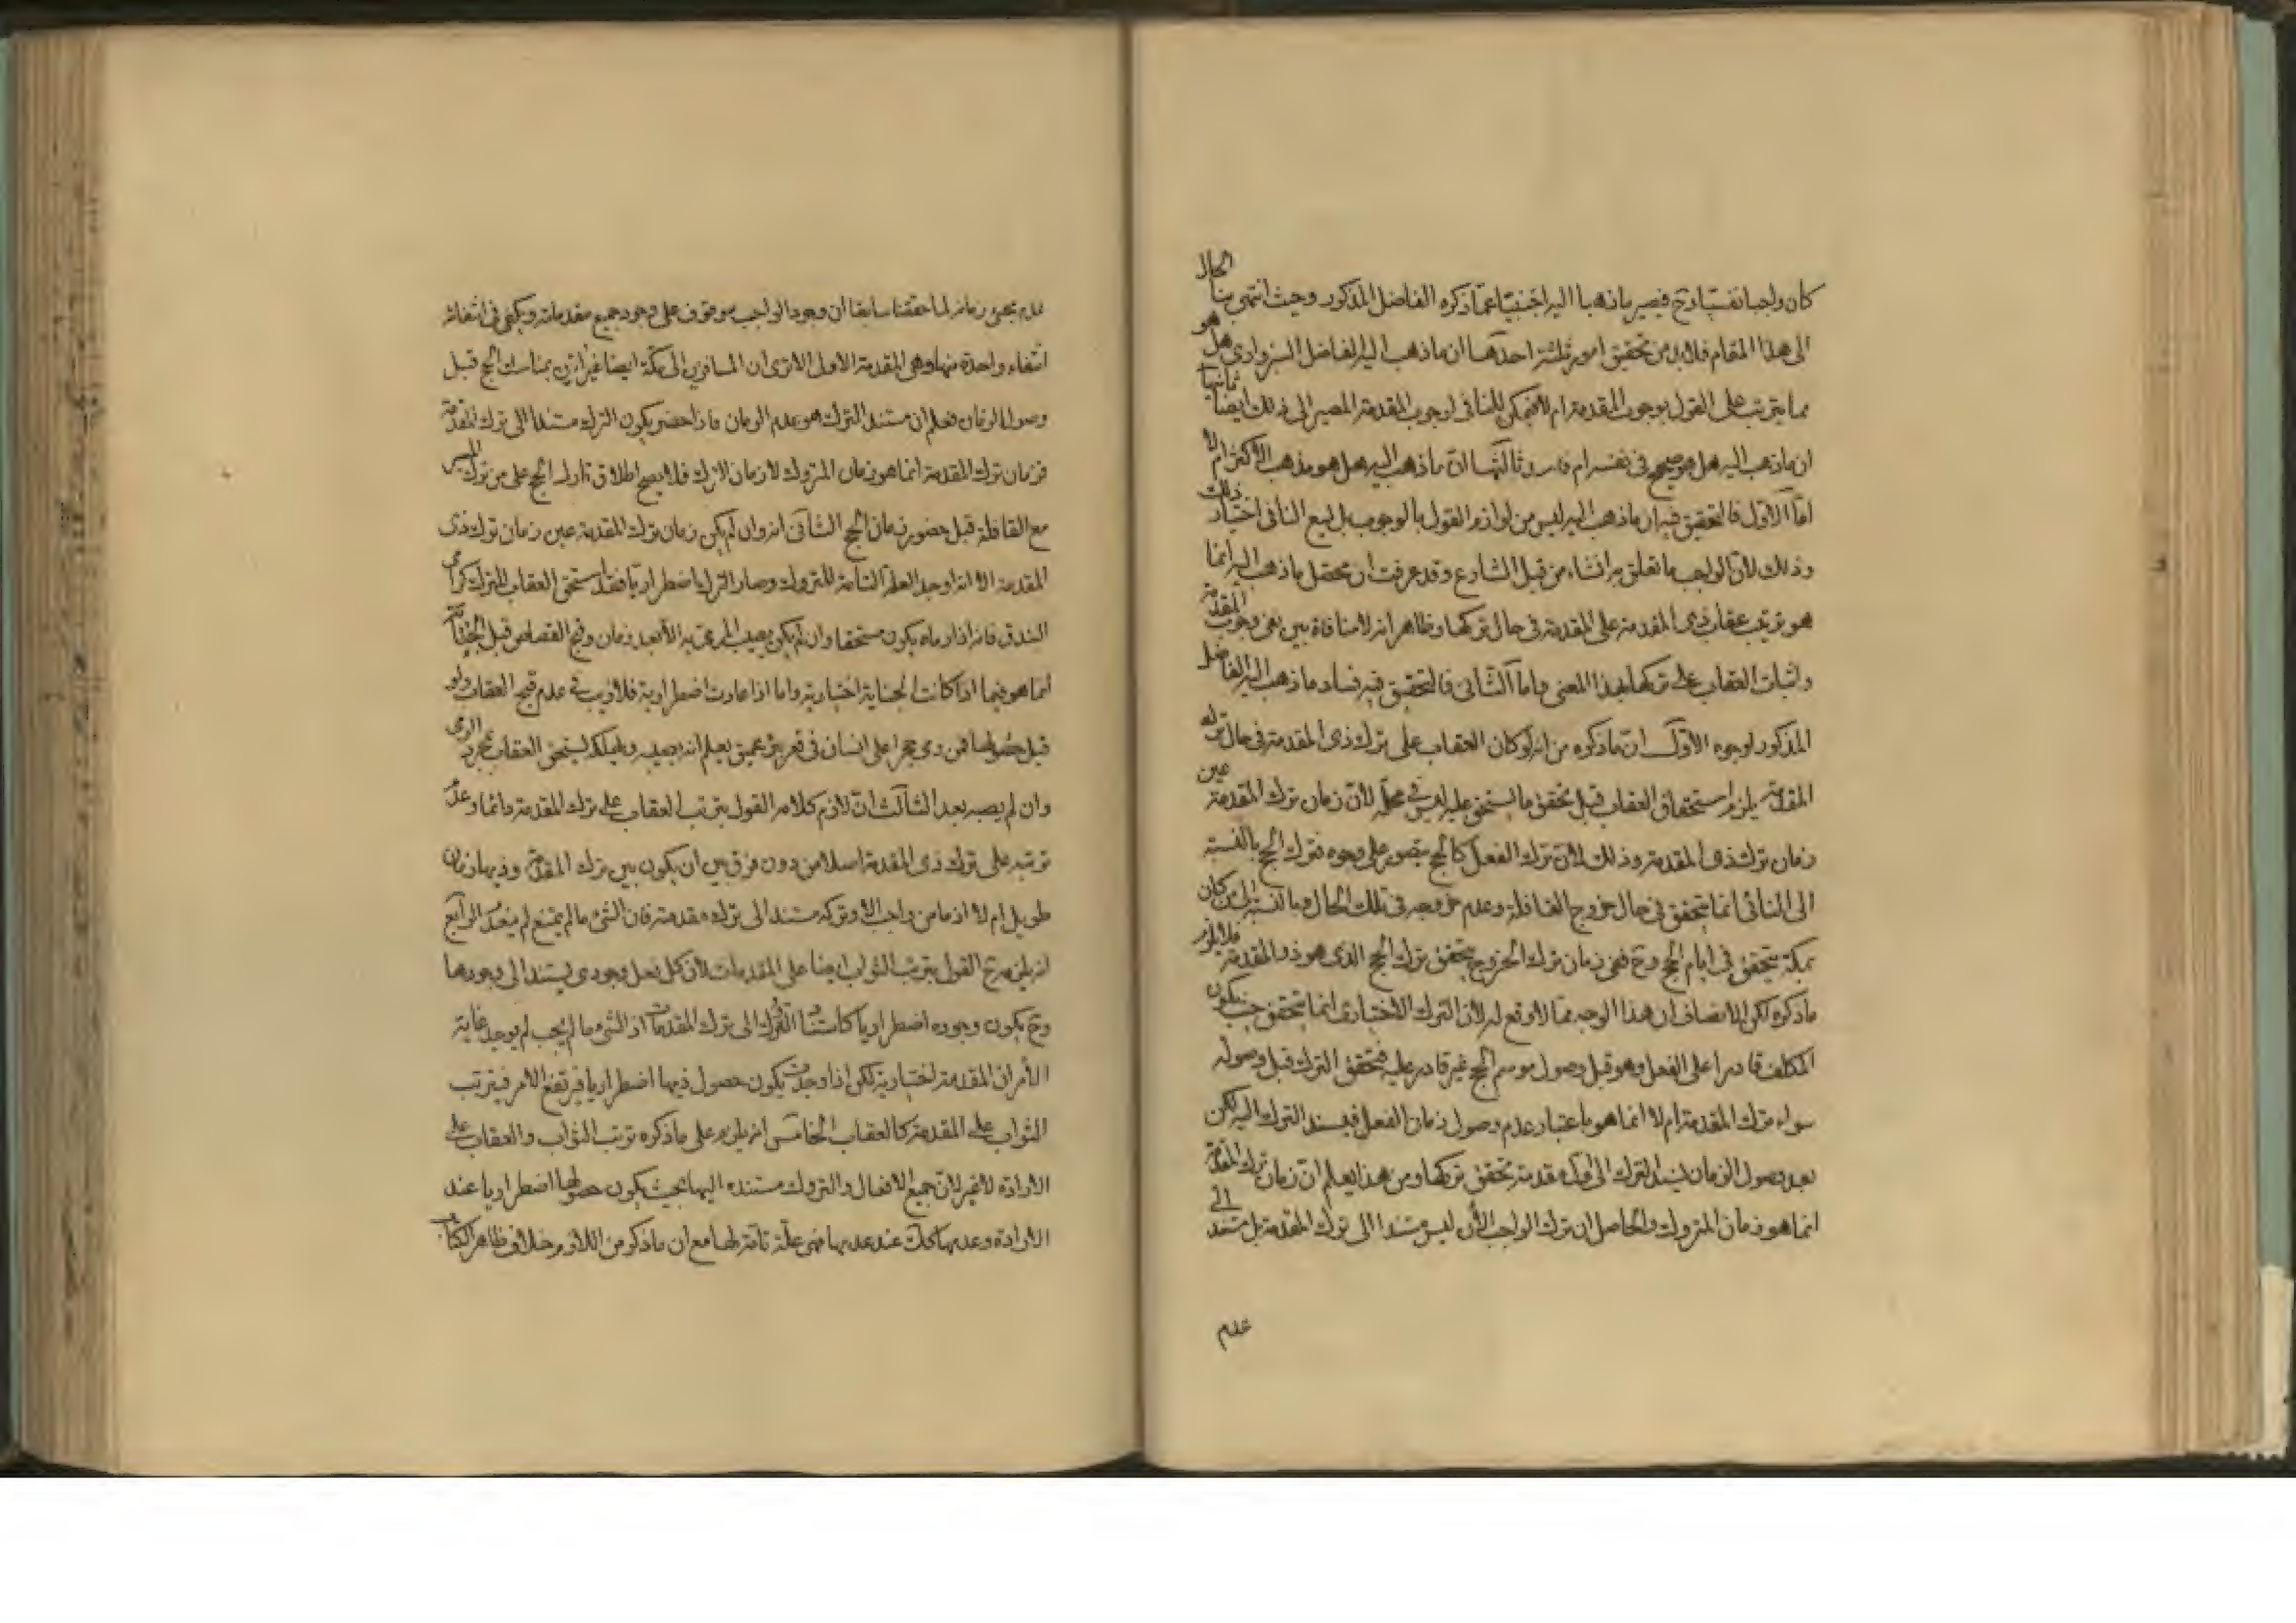 كان واجبا نفسيا وح فيصير ما ذهبا اليه اجنبيّا عمّا ذكره الفاضل المذكور وحيث انتهى بنا الحال
الى هذا المقام فلا بد من تحقيق امور ثلثة احدها ان ما ذهب اليه الفاضل السبزوارى هل هو
مما يترتب على القول بوجوب المقدمة ام لا فيمكن للنافى لوجوب المقدمة المصير الى ذلك ايضا ثانيها
ان ما ذهب اليه هل هو صحيح فى نفسه ام فاسد وثالثها انّ ما ذهب اليه هل هو مذهب الاكثر ام لا
امّا الاوّل فالتحقيق فيه ان ما ذهب اليه ليس من لوازم القول بالوجوب بل يسع النافى اختيار ذلك
وذلك لانّ الواجب ما تعلق به انشاء من قبل الشارع وقد عرفت ان محصّل ما ذهب اليه انما
هو ترتيب عقاب ذى المقدمة على المقدمة فى حال تركها وظاهر انه لا منافاة بين نفى وجوب المقدمة
واثبات العقاب على تركها بهذا المعنى واما الثانى فالتحقيق فيه فساد ما ذهب اليه الفاضل
المذكور لوجوه الاوّل انّ ما ذكره من انه لو كان العقاب على ترك ذى المقدمة فى حال ترك
المقدمة يلزم استحقاق العقاب قبل تحقق ما يستحق عليه ليس فى محلّه لانّ زمان ترك المقدمة عين
زمان ترك ذى المقدمة وذلك لانّ ترك الفعل كالحج يتصور على وجوه فترك الحج بالنسبة
الى النائى انما يتحقق فى حال خروج القافلة وعدم خروجه فى تلك الحال وبالنسبة الى من كان
بمكة يتحقق فى ايام الحج وح ففى زمان ترك الخروج يتحقق ترك الحج الذى هو ذو المقدمة فلا يلزم
ما ذكره لكن الانصاف ان هذا الوجه مما لا وقع له لان الترك الاختيارى انما يتحقق حين يكون
المكلف قادرا على الفعل وهو قبل وصول موسم الحج غير قادر عليه فتحقق الترك قبل وصوله
سواء ترك المقدمة ام لا انما هو باعتبار عدم وصول زمان الفعل فيسند الترك اليه لكن
بعد وصول الزمان يسند الترك الى مقدمة تحقق تركها ومن هذا يعلم انّ زمان ترك المقدمة
انما هو زمان المتروك والحاصل ان ترك الواجب الآن ليس مستندا الى ترك المقدمة بل مستند الى
عدم
عدم مجىء زمانه لما حققنا سابقا ان وجود الواجب موقوف على وجود جميع مقدماته ويكفى فى انتفائه
انتفاء واحدة منها وهى المقدمة الاولى الا ترى ان المسافرين الى مكة ايضا غير اتين بمناسك الحج قبل
وصول الزمان فعلم ان مستند الترك هو عدم الزمان فاذا حضر يكون الترك مستندا الى ترك المقدمة
فزمان ترك المقدمة انما هو زمان المتروك لا زمان الترك فلا يصح اطلاق تارك الحج على من ترك
مع القافلة قبل حضور زمان الحج الثانى انه وان لم يكن زمان ترك المقدمة عين زمان ترك ذى
المقدمة الا انه اوجد العلة التامة للمتروك وصار الترك اضطراريا فقد استحق العقاب للترك كرامى
البندق فانه اذا رماه يكون مستحقا وان لم يكن يصيب المرمى به الا بعد زمان وقبح القصاص قبل الجناية
انما هو فيما اذا كانت الجناية اختيارية واما اذا عادت اضطرارية فلا ريب فى عدم قبح العقاب ولو
قبل حصولها فمن رمى حجرا على انسان فى قعر بئر عميق يعلم انه يصيبه ويهلكه يستحق العقاب بمجرد الرمى
وان لم يصبه بعد الثالث انّ لازم كلامه القول بترتب العقاب على ترك المقدمة دائما وعدم
ترتبه على ترك ذى المقدمة اصلا من دون فرق بين ان يكون بين ترك المقدمة وذيها زمان
طويل ام لا اذ ما من واجب الا وتركه مستند الى ترك مقدمته فان الشىء ما لم يمتنع لم ينعدم الرابع
انه يلزمه ح القول بترتب الثواب ايضا على المقدمات لان كل فعل وجودى يستند الى وجودها
وح يكون وجوده اضطراريا كاستناد الترك الى ترك المقدمات اذ الشىء ما لم يجب لم يوجد غاية
الأمر ان المقدمة اختيارية لكن اذا وجدت يكون حصول ذيها اضطراريا فيرتفع الامر فيترتب
الثواب على المقدمة كالعقاب الخامس انه يلزم على ما ذكره ترتب الثواب والعقاب على
الارادة لا غير لانّ جميع الافعال والتروك مستندة اليها بحيث يكون حصولها اضطراريا عند
الارادة وعدمها كك عند عدمها فهى علّة تامّة لها مع ان ما ذكر من اللازم خلاف ظاهر الكتاب